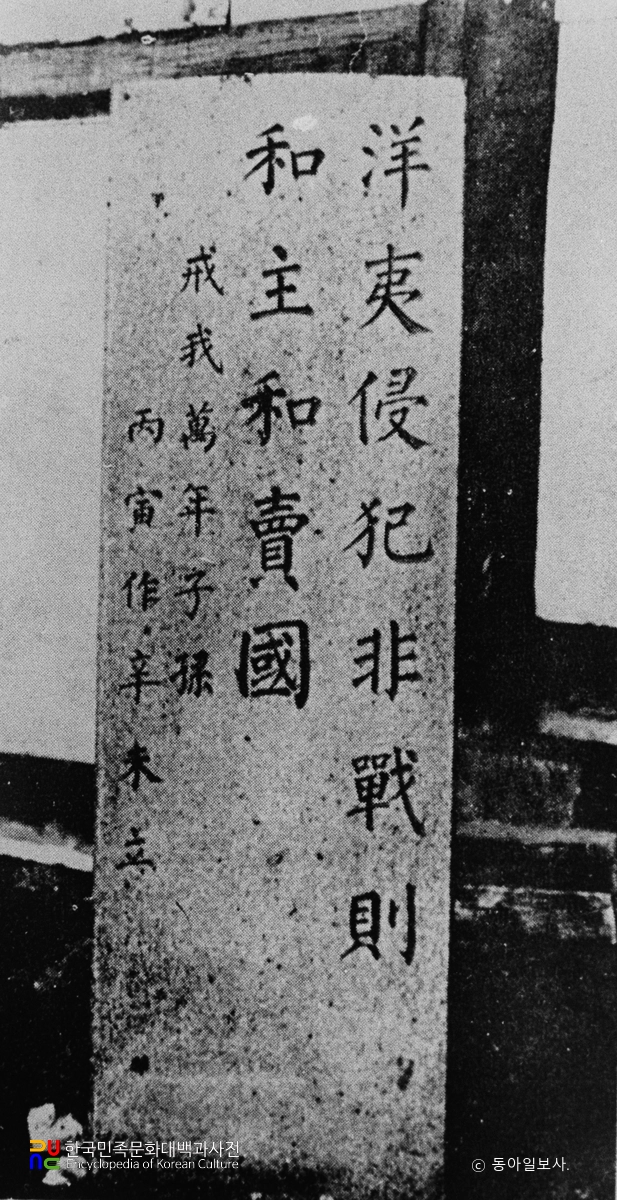 洋夷侵犯非戰則
和主和賣國
戒我萬年子孫
丙寅作 辛未立
한국민족문화대백과사전
Encyclopedia of Korean Culture
ⓒ 동아일보사.